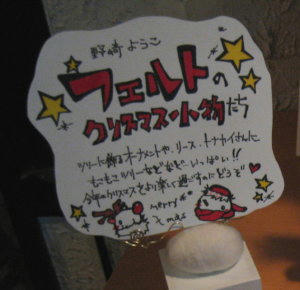 野崎ようこ
フェルトの
クリスマス小物たち
ツリーに飾るオーナメントや、リース、トナカイさんに
もこもこツリーなどなど いっぱい!!
今年のクリスマスをより楽しく過ごすのにどうぞ
merry
x'mas